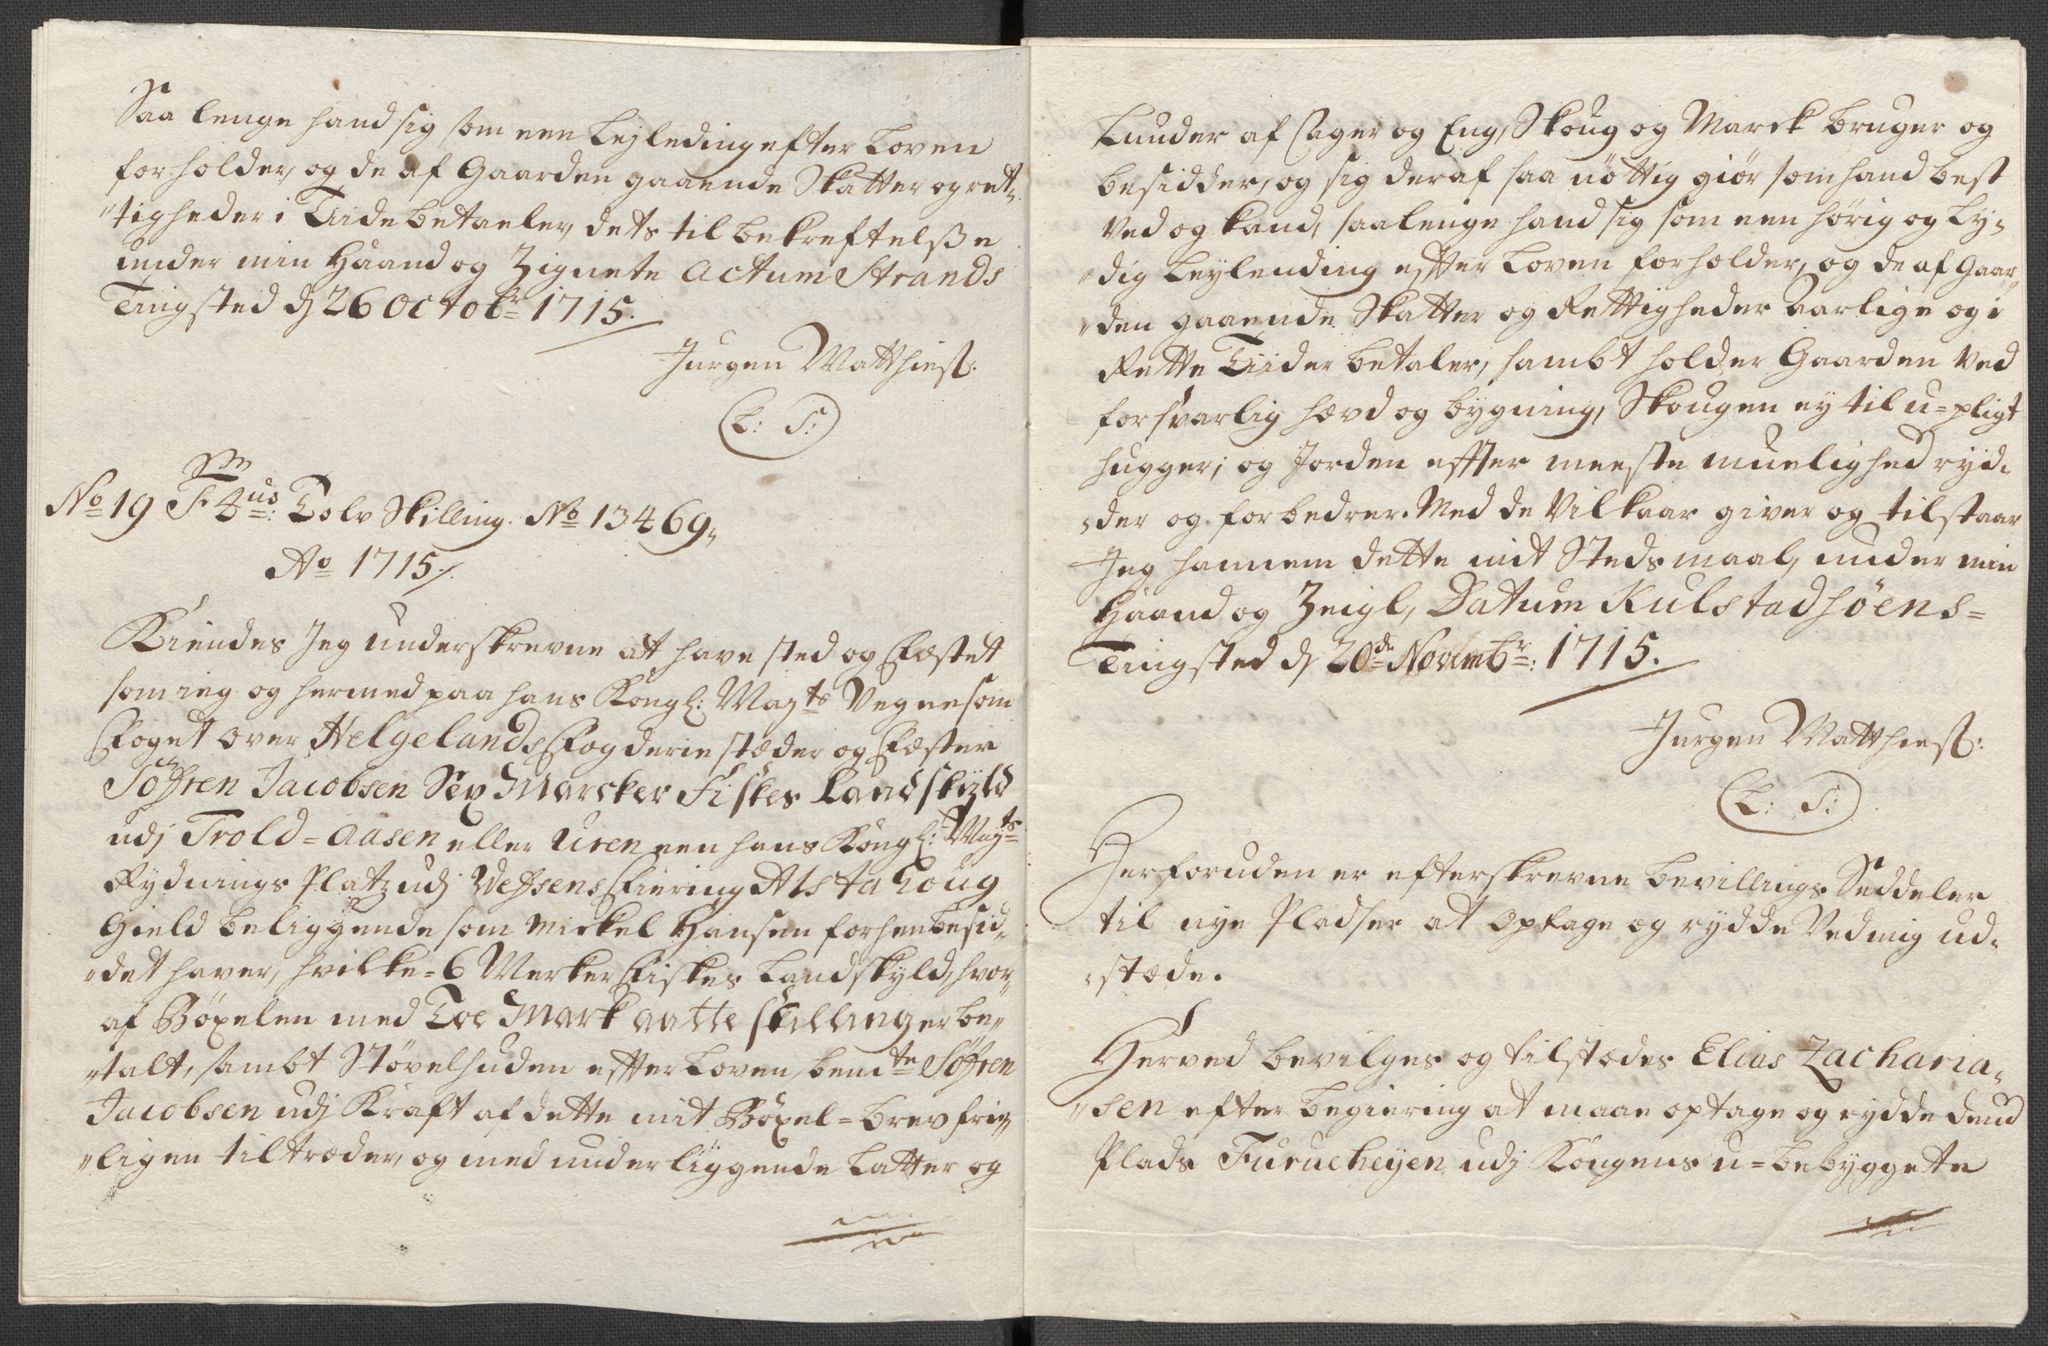 Saa lenge hand sig som een Lejlending efter Loven
forholder, og de af Gaarden gaaende Skatter og ret-
"tigheder i Tiide betaeler, dets til bekreftelsse
under min Haand og Zignete Actum Strands
Tingsted d 26 Octobr: 1715.
Jurgen Matthiess:
(L: S:)
No 19 F 4us: Tolv Skilling No 13469,
Ao 1715/.
Kiendes Jeg underskrevne at have sted og Fæstet
som ieg og hermed paa hans Kongl: Mayts Vegne som
Foget over Helgelands Fogderie stæder og Fæster
Söffren Jacobsen Sex Marcker Fiskes Landskyld
udj Trold-Aasen eller Uren een hans Kongl: Mayts
Rydnings Platz udj Wefsens Fiering Alstahoug
Gield beliggende som Mickel Hansen forhen besid-
"det haver, hvilke 6 Merker Fiskes Landskyld, hvor-
af Böxelen med Toe Mark aatte skilling er be-
"talt, sambt Støvelhuden effter Loven, bemte Söffren
Jacobsen udj Kraft af dette mit Böxel-brev frie-
"ligen tiltræder, og med underliggende Latter og
Lunder af Ager og Eng, Skoug og Marck bruger og
besidder, og sig deraf saa nöttig giör som hand best
Ved og kand, saalenge hand sig som een hörig og Ly-
"dig Leylending effter Loven forholder, og de af Gaar
"den gaaende Skatter og Rettigheder Aarlige og i
Rette Tiider betaler, sambt holder Gaarden Ved
forsvarlig hævd og bygning, Skougen ey til u-pligt
hugger, og Jorden effter meeste muelighed ryd-
"der og forbedrer. Med de Vilkaar giver og tilstaar
Jeg hannem dette mit Stedsmaal, under min
Haand og Zeigl, Datum Kulstadsöens-
Tingsted d 20de Novembr: 1715.
Jurgen Matthiess:
(L: S:)
Herforuden er efterskrevne bevillings Seddeler
til nye Pladser at Optage og rydde Ved mig ud-
"stæde.
Herved bevilges og tilstædes Elias Zacharia-
"sen efter begiering at maae optage og rydde dend
Plads Furueheyen udj Kongens u-bebyggete